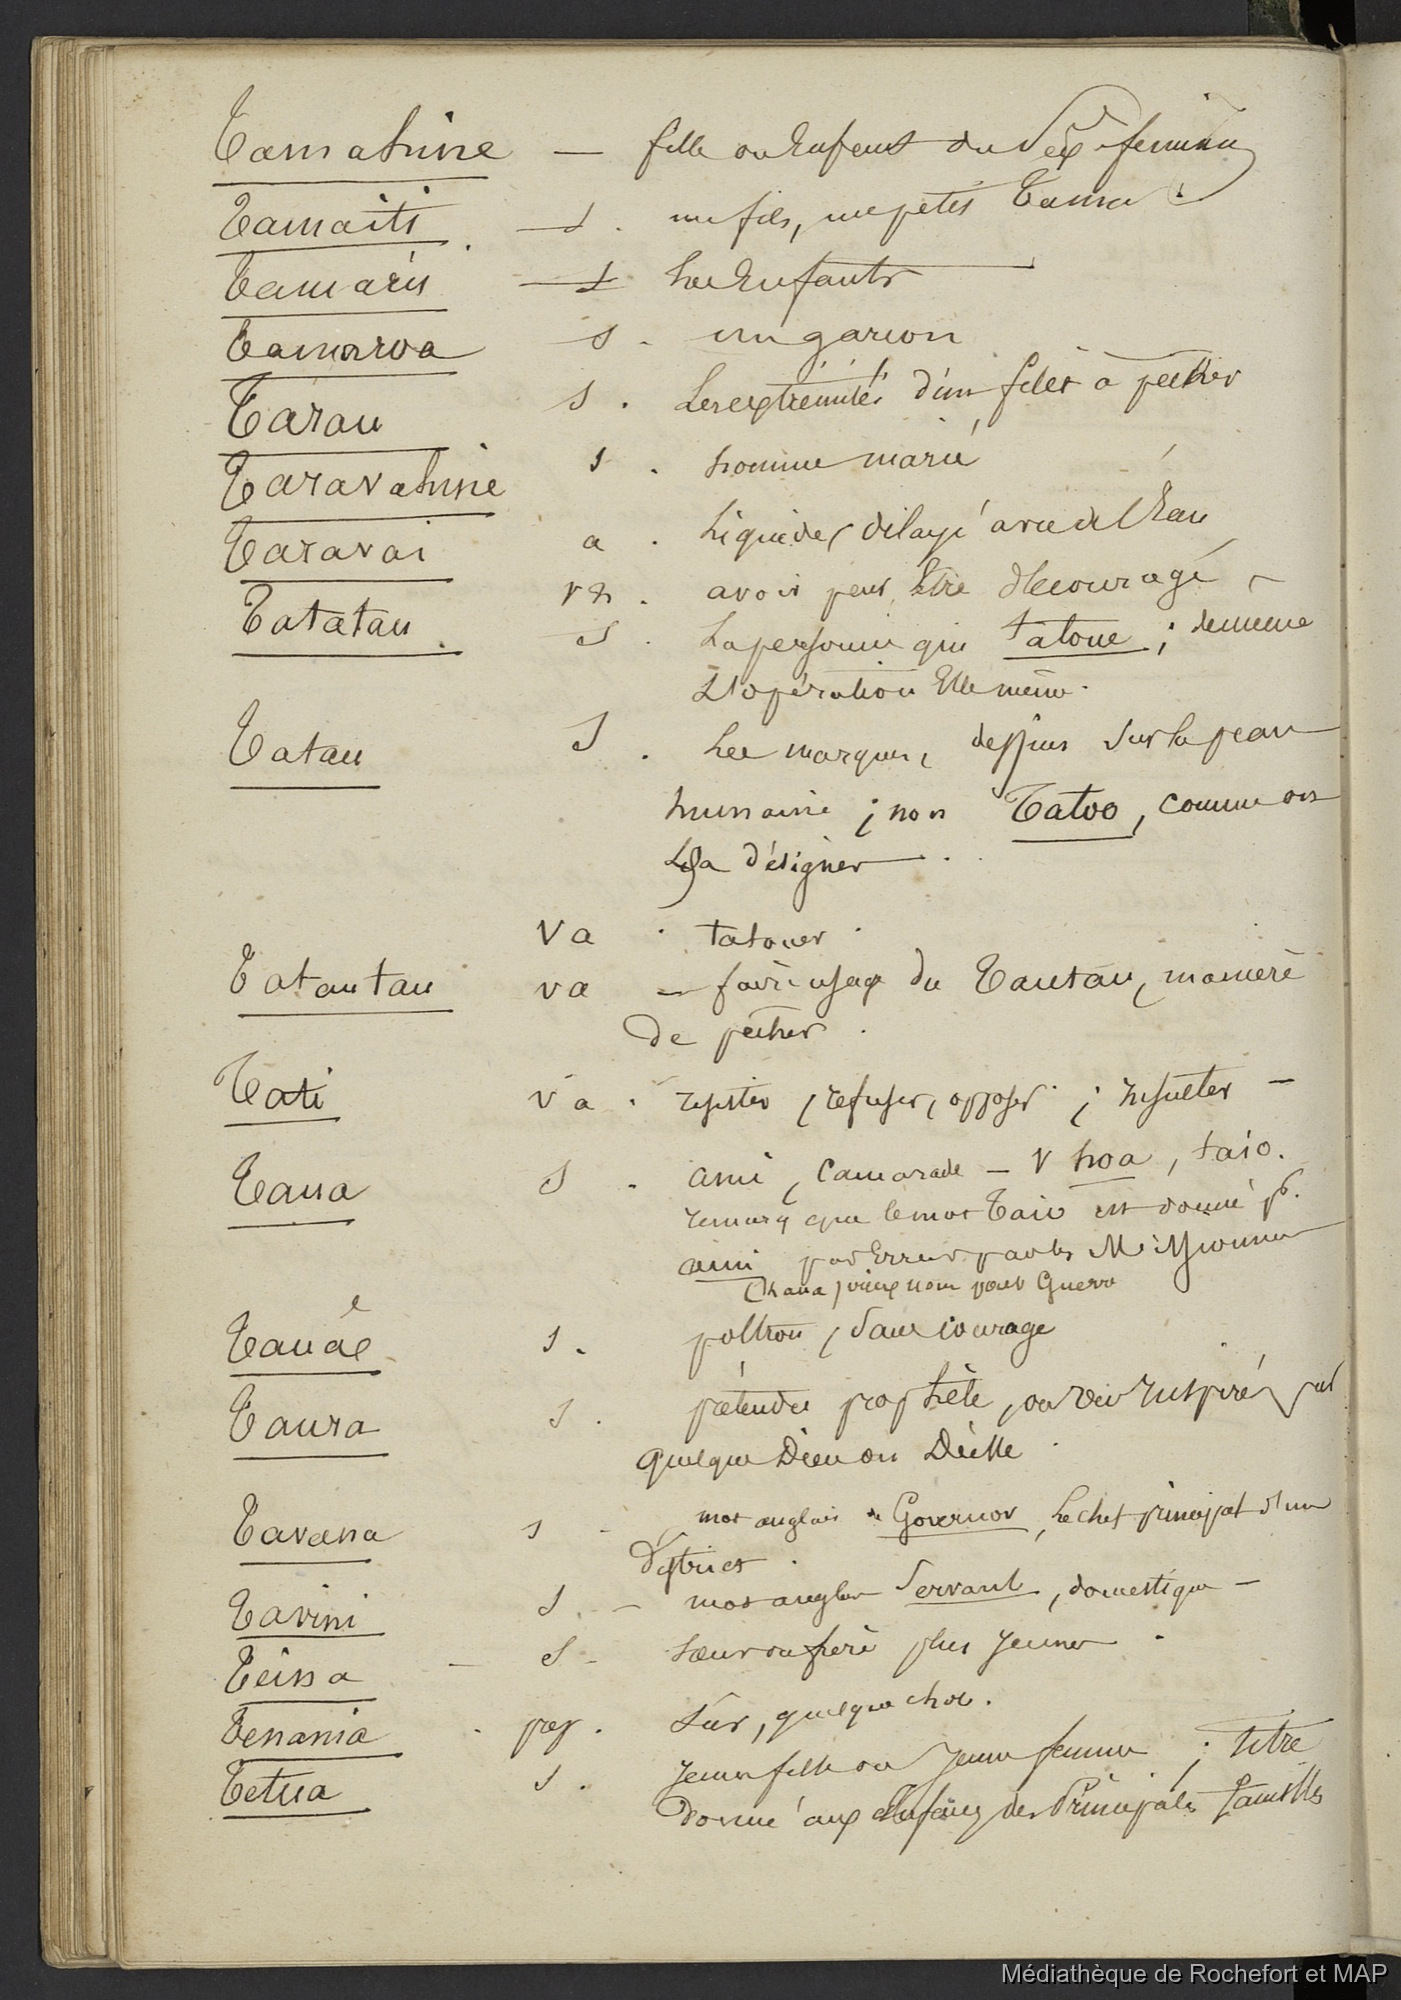 Tamahine — fille ou Enfant du Sexe feminin
Tamaiti s. un fils, un petit Tama.
Tamarii s les Enfants
Tamaroa s. un garcon
Tarau s. Les extrémités d'un filet à pecher
Taravahine s. homme marié
Taravai a. Liquide, délayé avec de l'Eau
vn. avoir peur, Etre découragé
Tatatau s. La personne qui tatoue ; de même
L'opération Elle même.
Tatau S. Les marques, dessins sur la peau
humaine ; non Tatoo, comme on
l'a désigner.
va. tatouer.
Tatautau va — faire usage du Tautau, maniere
de pecher.
Tati va. resister, refuser, opposer ; insulter —
Taua S. ami, Camarade — v hoa, taio.
remarq que le mot Taio est donné pr.
ami par Erreur par les Missionner
Taua, vieux nom pour Guerre
Tauae s. poltron, sans courage
Taura s. prétendu prophète, ou Inspiré par
quelque Dieu ou Déesse.
Tavana s — mot anglais de Governor, le chef principal d'un
District.
Tavini s. — mot anglais Servant, domestique —
Teina — s — soeur ou frère plus jeune.
Tenania . prep. sur, quelque chose.
Tetua s. jeune fille ou jeune femme ; titre
donné aux Enfans des Principales familles
Médiathèque de Rochefort et MAP